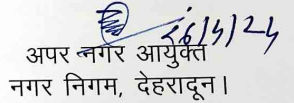 26/4/24
अपर नगर आयुक्त
नगर निगम, देहरादून।